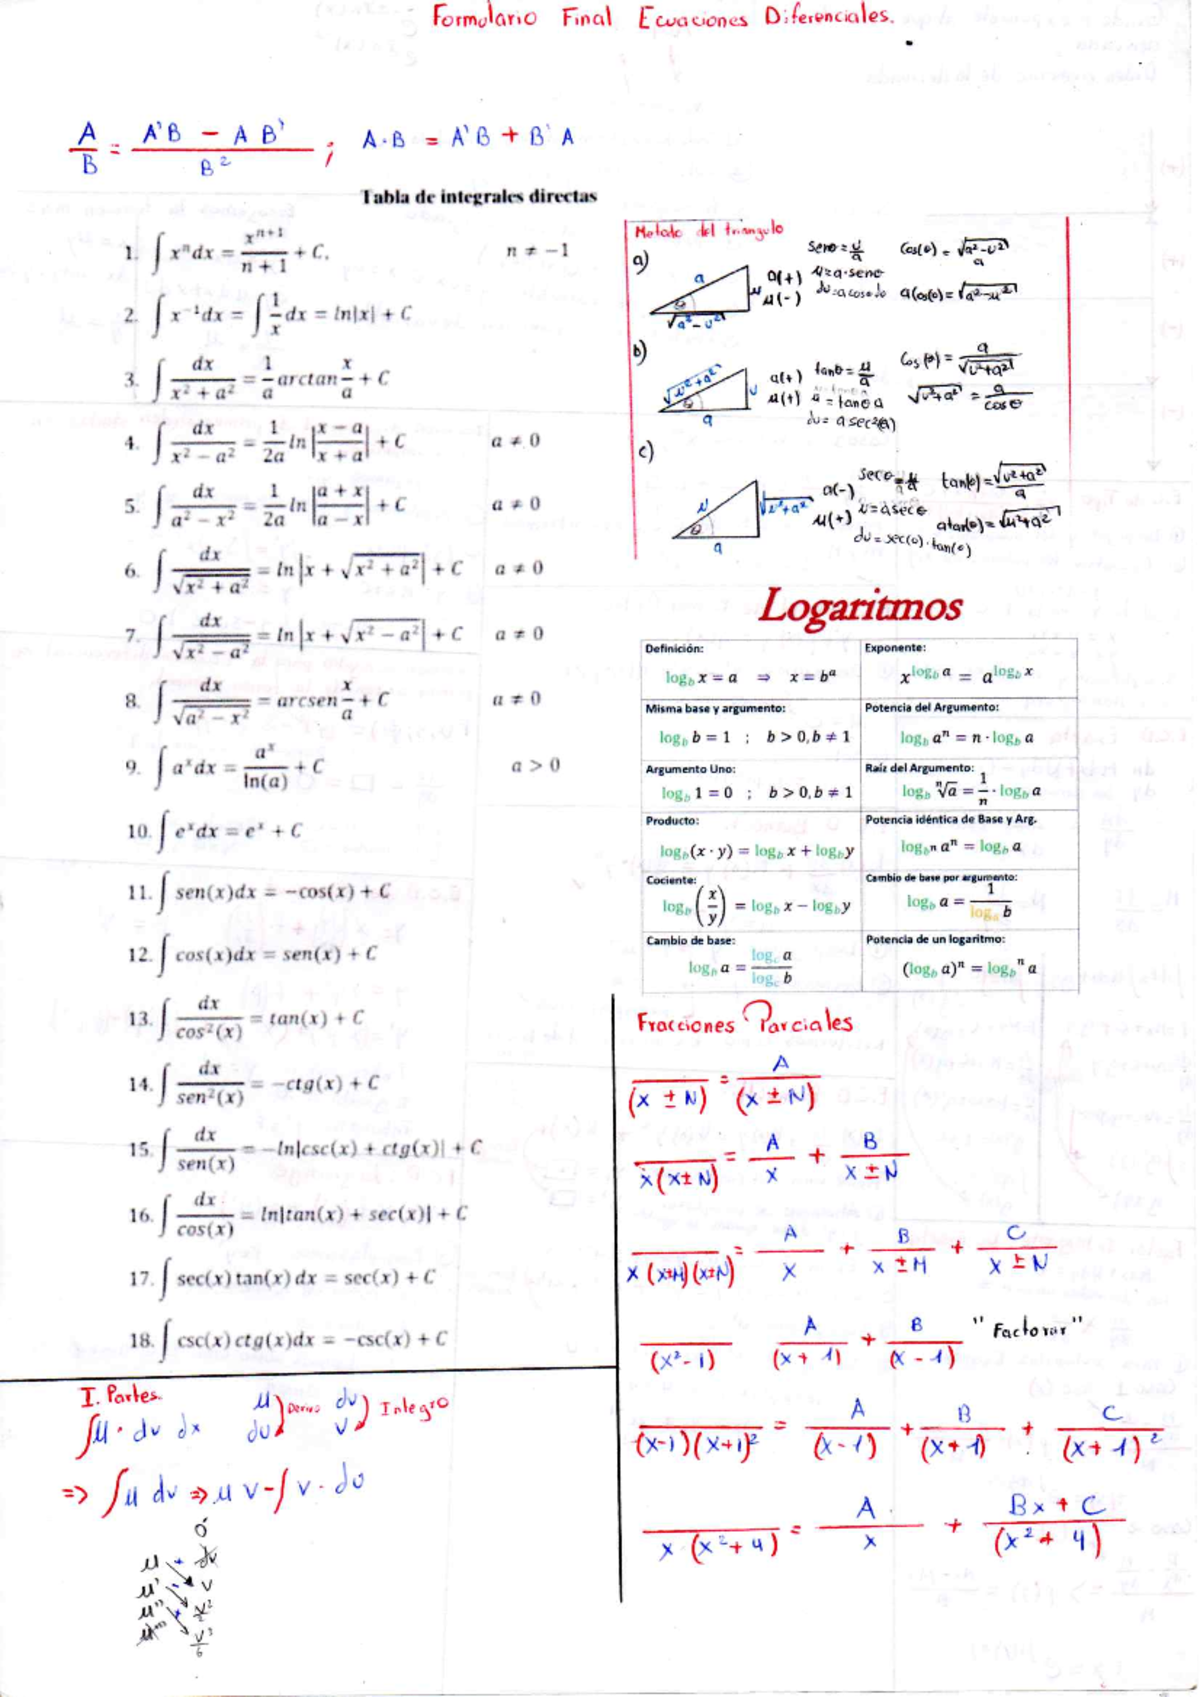 Formulario Final Ecuaciones Diferenciales.
A/B = (A'B - A B')/B² ; A·B = A'B + B'A
Tabla de integrales directas
1. ∫ xⁿdx = xⁿ⁺¹/(n + 1) + C, n ≠ -1
2. ∫ x⁻¹dx = ∫ 1/x dx = ln|x| + C
3. ∫ dx/(x² + a²) = 1/a arctan x/a + C
4. ∫ dx/(x² - a²) = 1/2a ln |(x - a)/(x + a)| + C a ≠ 0
5. ∫ dx/(a² - x²) = 1/2a ln |(a + x)/(a - x)| + C a ≠ 0
6. ∫ dx/√(x² + a²) = ln |x + √(x² + a²)| + C a ≠ 0
7. ∫ dx/√(x² - a²) = ln |x + √(x² - a²)| + C a ≠ 0
8. ∫ dx/√(a² - x²) = arcsen x/a + C a ≠ 0
9. ∫ aˣdx = aˣ/ln(a) + C a > 0
10. ∫ eˣdx = eˣ + C
11. ∫ sen(x)dx = -cos(x) + C
12. ∫ cos(x)dx = sen(x) + C
13. ∫ dx/cos²(x) = tan(x) + C
14. ∫ dx/sen²(x) = -ctg(x) + C
15. ∫ dx/sen(x) = -ln|csc(x) + ctg(x)| + C
16. ∫ dx/cos(x) = ln|tan(x) + sec(x)| + C
17. ∫ sec(x) tan(x) dx = sec(x) + C
18. ∫ csc(x) ctg(x)dx = -csc(x) + C
I. Partes.
∫u · dv dx
u dv
du v
Derivo
Integro
=> ∫u dv => u v - ∫v · du
u + dv
u' - v
u'' + v²/2
u''' v³/6
Metodo del triangulo
a)
a
u
θ
√(a² - u²)
a(+)
u(-)
senθ = u/a
u = a·senθ
du = a cosθ dθ
cos(θ) = √(a² - u²)/a
a cos(θ) = √(a² - u²)
b)
√(u² + a²)
u
θ
a
a(+)
u(+)
tanθ = u/a
u = tanθ a
du = a sec²(θ)
cos(θ) = a/√(u² + a²)
√(u² + a²) = a/cosθ
c)
u
√(u² + a²)
θ
a
a(-)
u(+)
secθ = u/a
u = a secθ
du = sec(θ) · tan(θ)
tan(θ) = √(u² + a²)/a
a tan(θ) = √(u² + a²)
Logaritmos
Definición:
log_b x = a ⇒ x = bᵃ
Exponente:
x^(log_b a) = a^(log_b x)
Misma base y argumento:
log_b b = 1 ; b > 0, b ≠ 1
Potencia del Argumento:
log_b aⁿ = n · log_b a
Argumento Uno:
log_b 1 = 0 ; b > 0, b ≠ 1
Raíz del Argumento:
log_b ⁿ√a = 1/n · log_b a
Producto:
log_b(x · y) = log_b x + log_b y
Potencia idéntica de Base y Arg.
log_bⁿ aⁿ = log_b a
Cociente:
log_b (x/y) = log_b x - log_b y
Cambio de base por argumento:
log_b a = 1/log_a b
Cambio de base:
log_b a = log_c a/log_c b
Potencia de un logaritmo:
(log_b a)ⁿ = log_bⁿ a
Fracciones Parciales
/(x ± N) = A/(x ± N)
/x(x ± N) = A/x + B/(x ± N)
/x(x±M)(x±N) = A/x + B/(x ± M) + C/(x ± N)
/(x² - 1) A/(x + 1) + B/(x - 1) "Factorar"
/(x-1)(x+1)² = A/(x - 1) + B/(x + 1) + C/(x + 1)²
/x·(x² + 4) = A/x + (Bx + C)/(x² + 4)